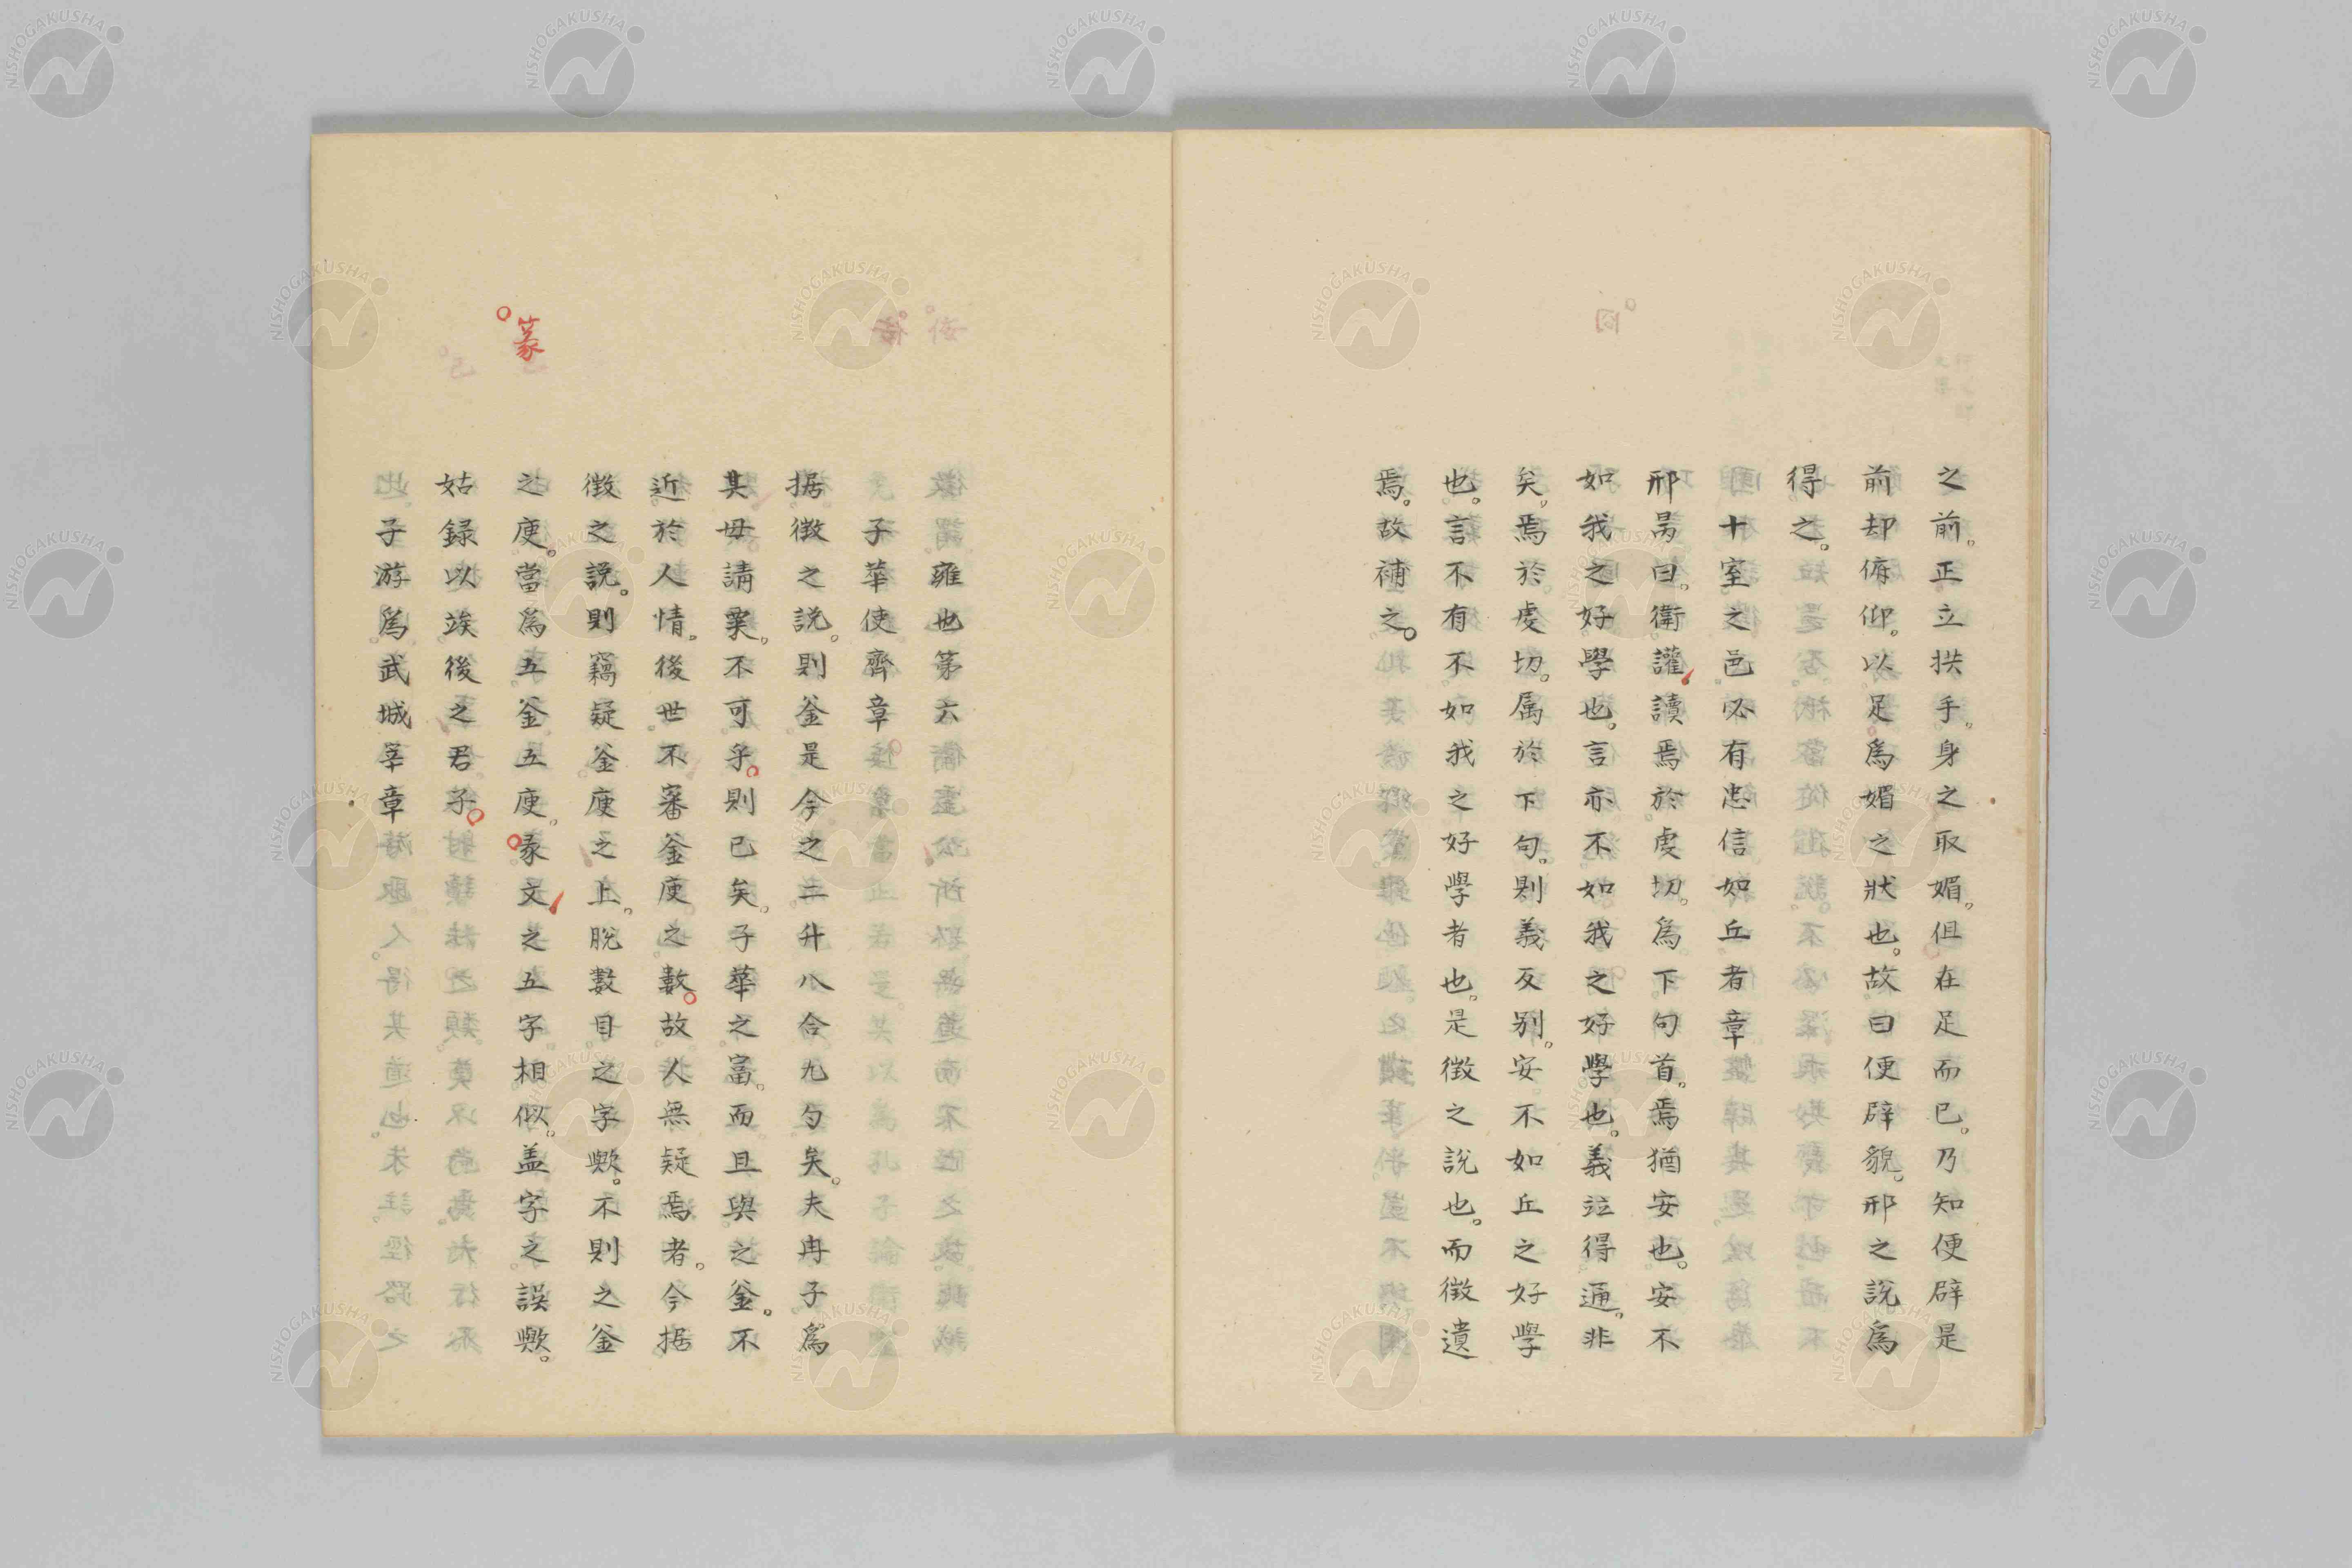 之前。正立拱手。身之取媚。但在足而已。乃知便辟是
前却俯仰。以足爲媚之狀也。故曰便辟貌。邢之說爲
得之。
十室之邑必有忠信如丘者章
邢昺曰。衛讙讀焉於虔切。爲下句首。焉猶安也。安不
如我之好學也。言亦不如我之好學也。義竝得通。非
矣。焉於虔切。属於下句。則義反别。安不如丘之好學
也。言不有不如我之好學者也。是徴之說也。而徴遺
焉。故補之。
雍也第六
子華使齊章
据徴之說。則釜是今之二升八合九勺矣。夫冉子爲
其母請粟。不可乎。則已矣。子華之富。而且與之釜。不
近於人情。後世不審釜庾之數。故人無疑焉者。今据
徴之說。則竊疑釜庾之上。脱數目之字歟。不則之釜
之庾。當爲五釜五庾。彖文之五字相似。盖字之誤歟。
姑録以竢後之君子。
子游爲武城宰章
篆
NISHOGAKUSHA